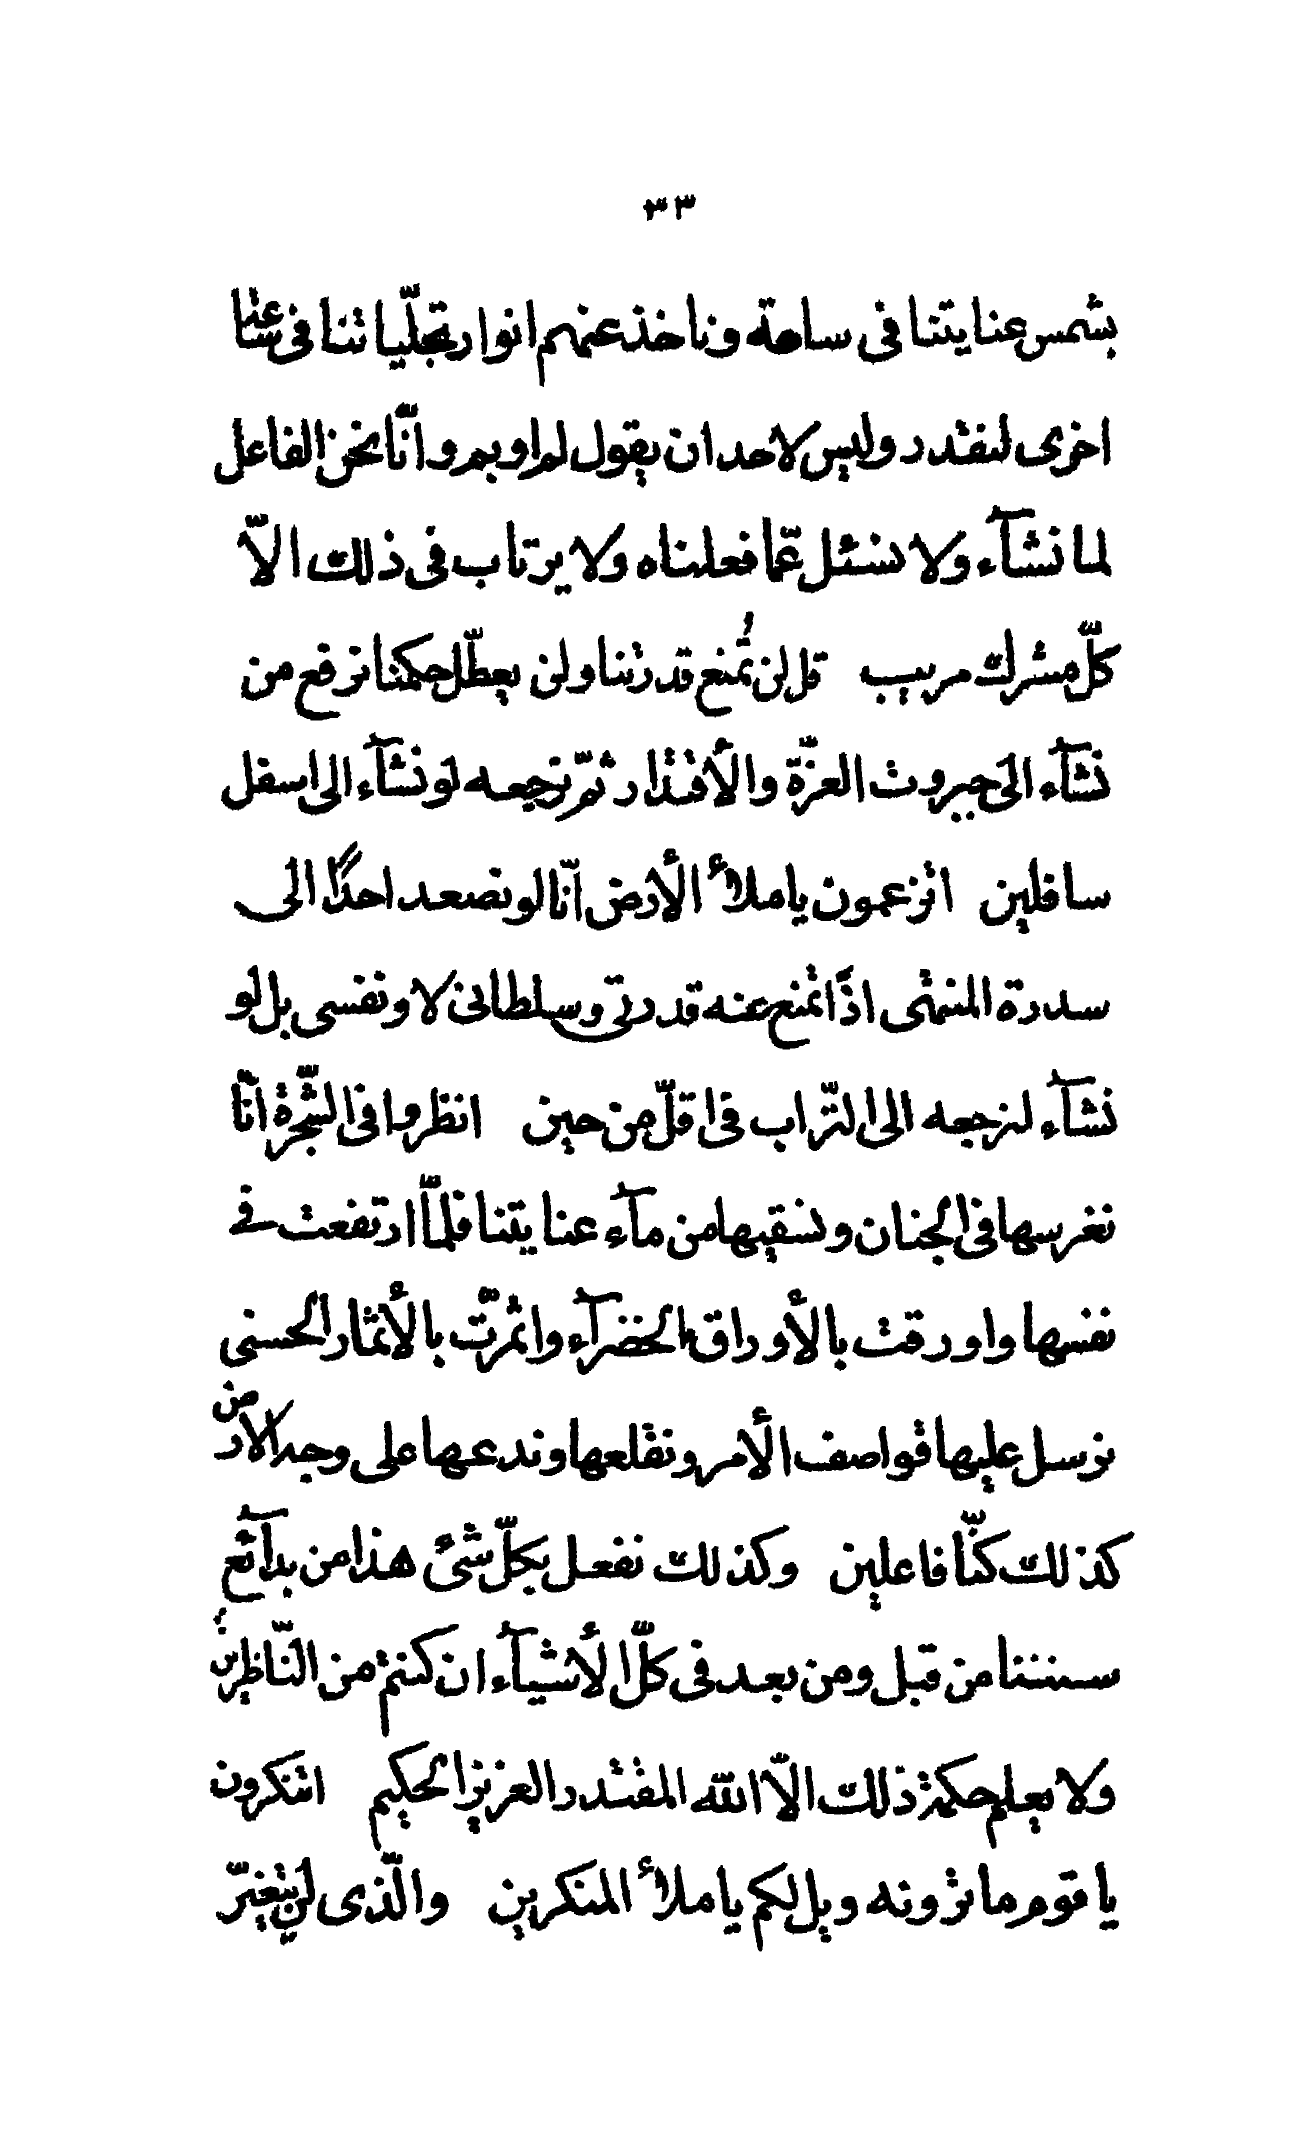 ٣٣
بشمس عنايتنا فى ساحة وناخذ عنهم انوار تجلّياتنا فى ساعة
اخرى لنقدر وليس لاحد ان يقول لم او بم وانّا نحن الفاعل
لما نشآء ولا نسئل عمّا فعلناه ولا يرتاب فى ذلك الاّ
كلّ مشرك مريب قل لن تُمنع قدرتنا ولن يعطّل حكمنا نرفع من
نشآء الى جبروت العزّة والأقتدار ثمّ نرجعه لو نشآء الى اسفل
سافلين اتزعمون يا ملأ الأرض انّا لو نصعد احدًا الى
سدرة المنتهى اذًا تمنع عنه قدرتى وسلطانى لا ونفسى بل لو
نشآء لنرجعه الى التّراب فى اقلّ من حين انظروا فى الشّجرة انّا
نغرسها فى الجنان ونسقيها من مآء عنايتنا فلمّا ارتفعت فى
نفسها واورقت بالأوراق الخضرآء واثمرّت بالأثمار الحسنى
نرسل عليها قواصف الأمر ونقلعها وندعها على وجه الارض
كذلك كنّا فاعلين وكذلك نفعل بكلّ شئ هذا من بدآئع
سنننا من قبل ومن بعد فى كلّ الأشيآء ان كنتم من النّاظرين
ولا يعلم حكمة ذلك الاّ الله المقتدر العزيز الحكيم اتنكرون
يا قوم ما ترونه ويل لكم يا ملأ المنكرين والّذى لن يتغيّر